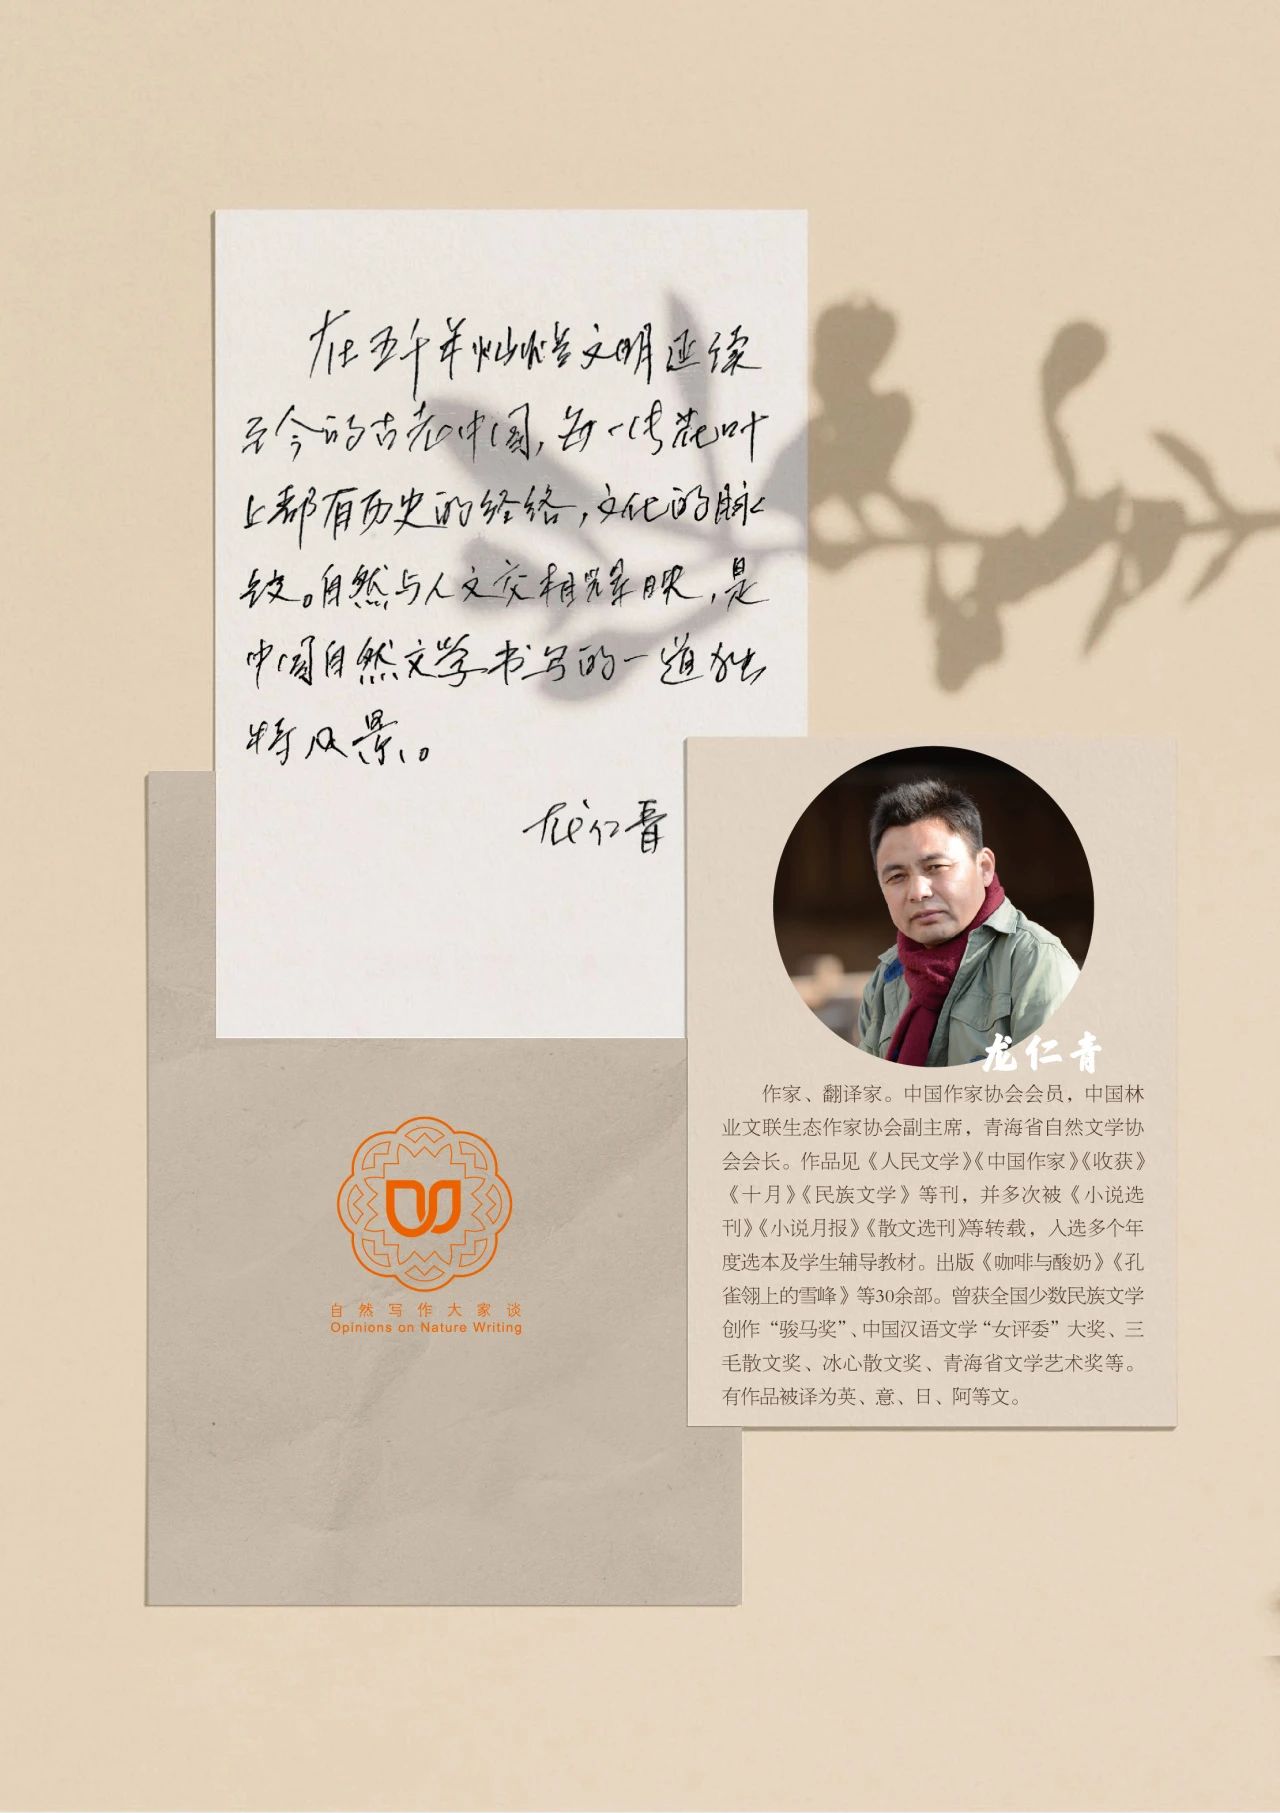 在五千年灿烂文明延续
至今的古老中国,每一片花叶
上都有历史的经络,文化的脉
纹。自然与人文交相辉映,是
中国自然文学书写的一道独
特风景。
龙仁青
龙仁青
作家、翻译家。中国作家协会会员，中国林
业文联生态作家协会副主席，青海省自然文学协
会会长。作品见《人民文学》《中国作家》《收获》
《十月》《民族文学》等刊，并多次被《小说选
刊》《小说月报》《散文选刊》等转载，入选多个年
度选本及学生辅导教材。出版《咖啡与酸奶》《孔
雀翎上的雪峰》等30余部。曾获全国少数民族文学
创作“骏马奖”、中国汉语文学“女评委”大奖、三
毛散文奖、冰心散文奖、青海省文学艺术奖等。
有作品被译为英、意、日、阿等文。
自然写作大家谈
Opinions on Nature Writing